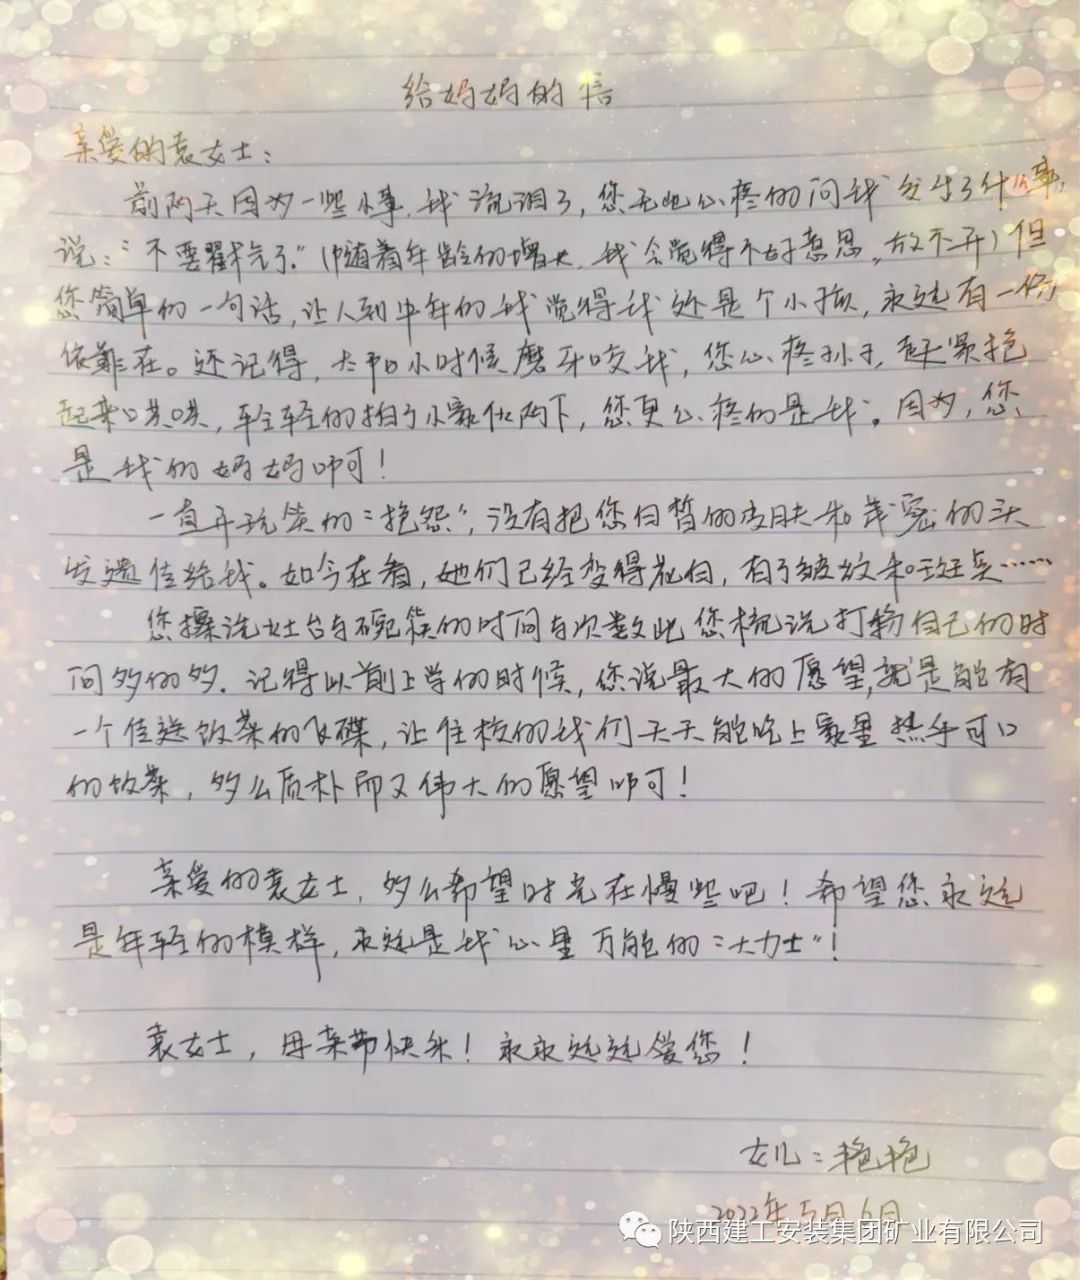 给妈妈的信
亲爱的袁女士：
前两天因为一些小事，我流泪了，您无比心疼的问我发生了什么事，
说：“不要哭了。”（随着年龄的增大，我会觉得不好意思，放不开）但
您简单的一句话，让人到中年的我觉得我还是个小孩，永远有一份
依靠在。还记得，大小时候磨牙咬我，您心疼孙子，赶紧抱
起来哄哄，轻轻的拍了小家伙两下，您更心疼的是我。因为，您
是我的妈妈呀！
一直开玩笑的“抱怨”，没有把您白皙的皮肤和茂密的头
发遗传给我。如今在看，她们已经变得花白，有了皱纹和斑点……
您擦洗灶台与碗筷的时间与次数比您梳洗打扮自己的时
间多的多。记得以前上学的时候，您说最大的愿望，就是能有
一个传送饭菜的飞碟，让住校的我们天天能吃上家里热乎可口
的饭菜，多么质朴而又伟大的愿望呀！
亲爱的袁女士，多么希望时光在慢些吧！希望您永远
是年轻的模样，永远是我心里万能的“大力士”！
袁女士，母亲节快乐！永永远远爱您！
女儿：艳艳
2022年5月6日
陕西建工安装集团矿业有限公司